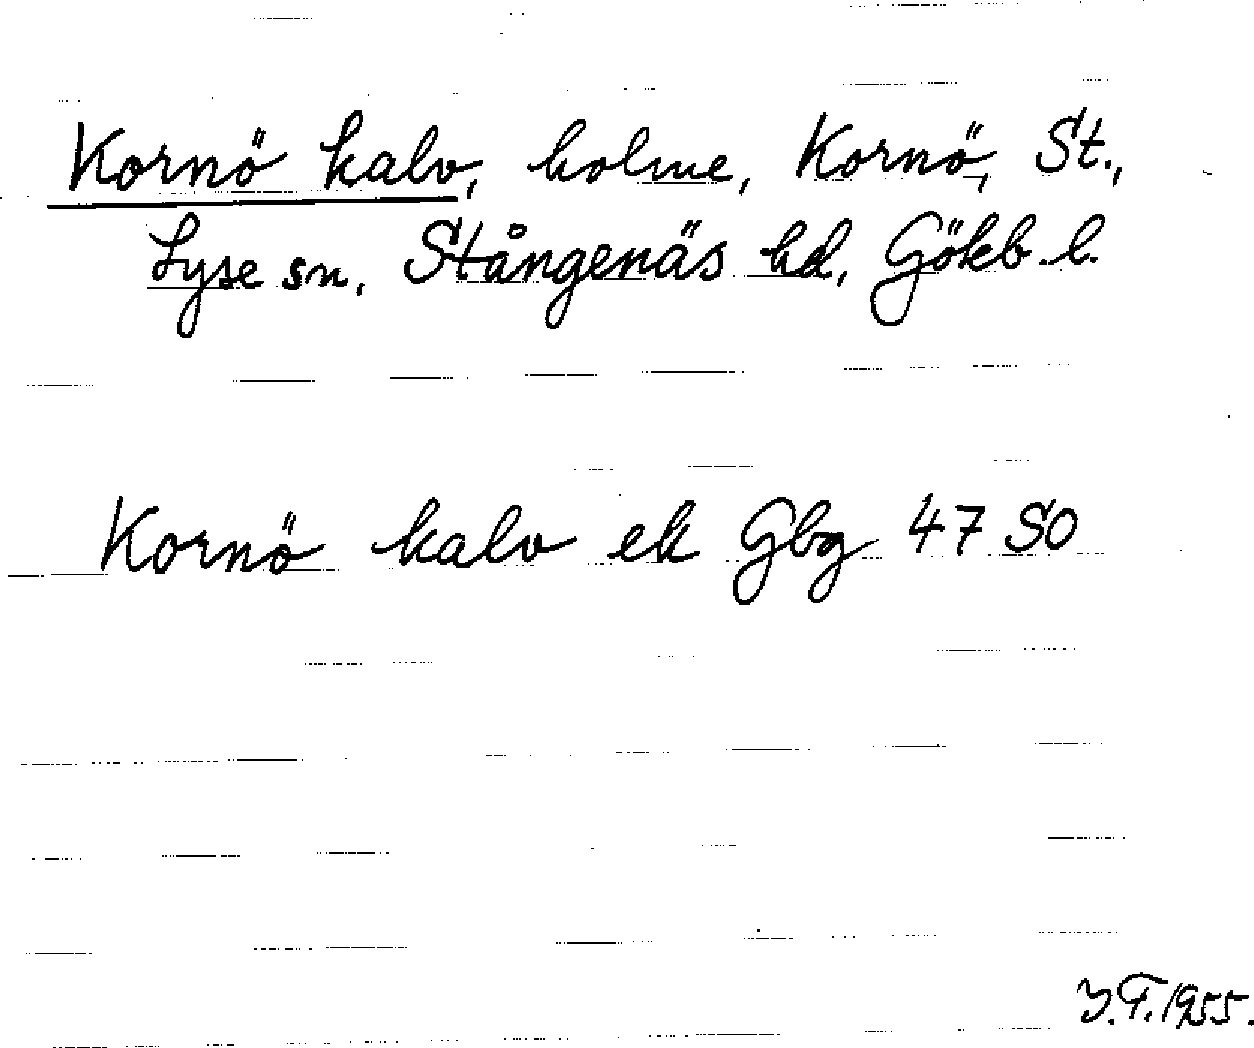 Kornö kalv, holme, Kornö, St.,
Lyse sn, Stångenäs hd, Gökb. l.
Kornö kalv ek Gbg 47 SO
J.T. 1955.